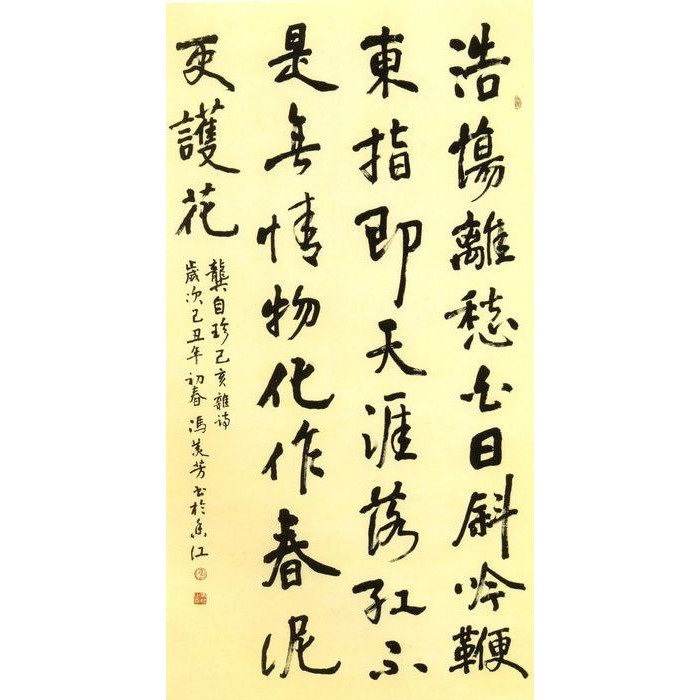 浩蕩離愁白日斜吟鞭
東指即天涯落紅不
是無情物化作春泥
更護花
龔自珍己亥雜詩
歲次己丑年初春 馮美芳书於香江